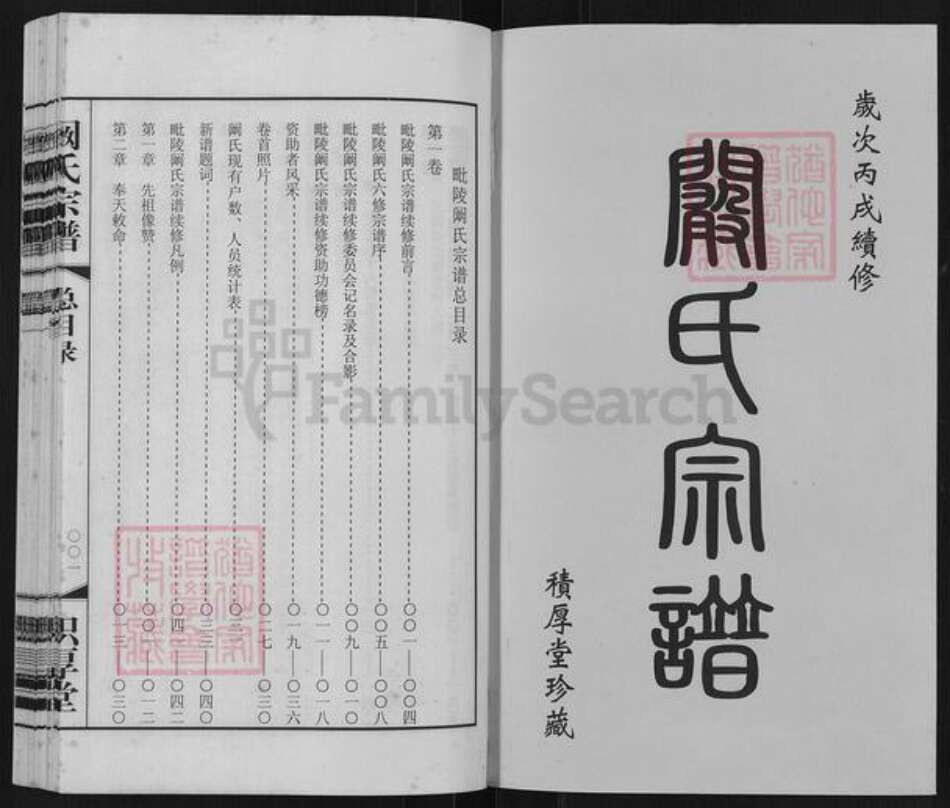 歲次丙戌續修
闞氏宗譜
積厚堂珍藏
毗陵阚氏宗谱总目录
第一卷
毗陵阚氏宗谱续修前言 〇〇一——〇〇四
毗陵阚氏六修宗谱序 〇〇五——〇〇八
毗陵阚氏宗谱续修委员会记名录及合影 〇〇九——〇一〇
毗陵阚氏宗谱续修资助功德榜 〇一一——〇一八
资助者风采 〇一九——〇二六
卷首照片 〇二七——〇三〇
阚氏现有户数、人员统计表
新谱题词 〇三三——〇四〇
毗陵阚氏宗谱续修凡例 〇四一——〇四二
第一章 先祖像赞 〇〇一——〇一二
第二章 奉天敕命 〇一三——〇三〇
阚氏宗谱
总目录
〇〇一
积厚堂
FamilySearch